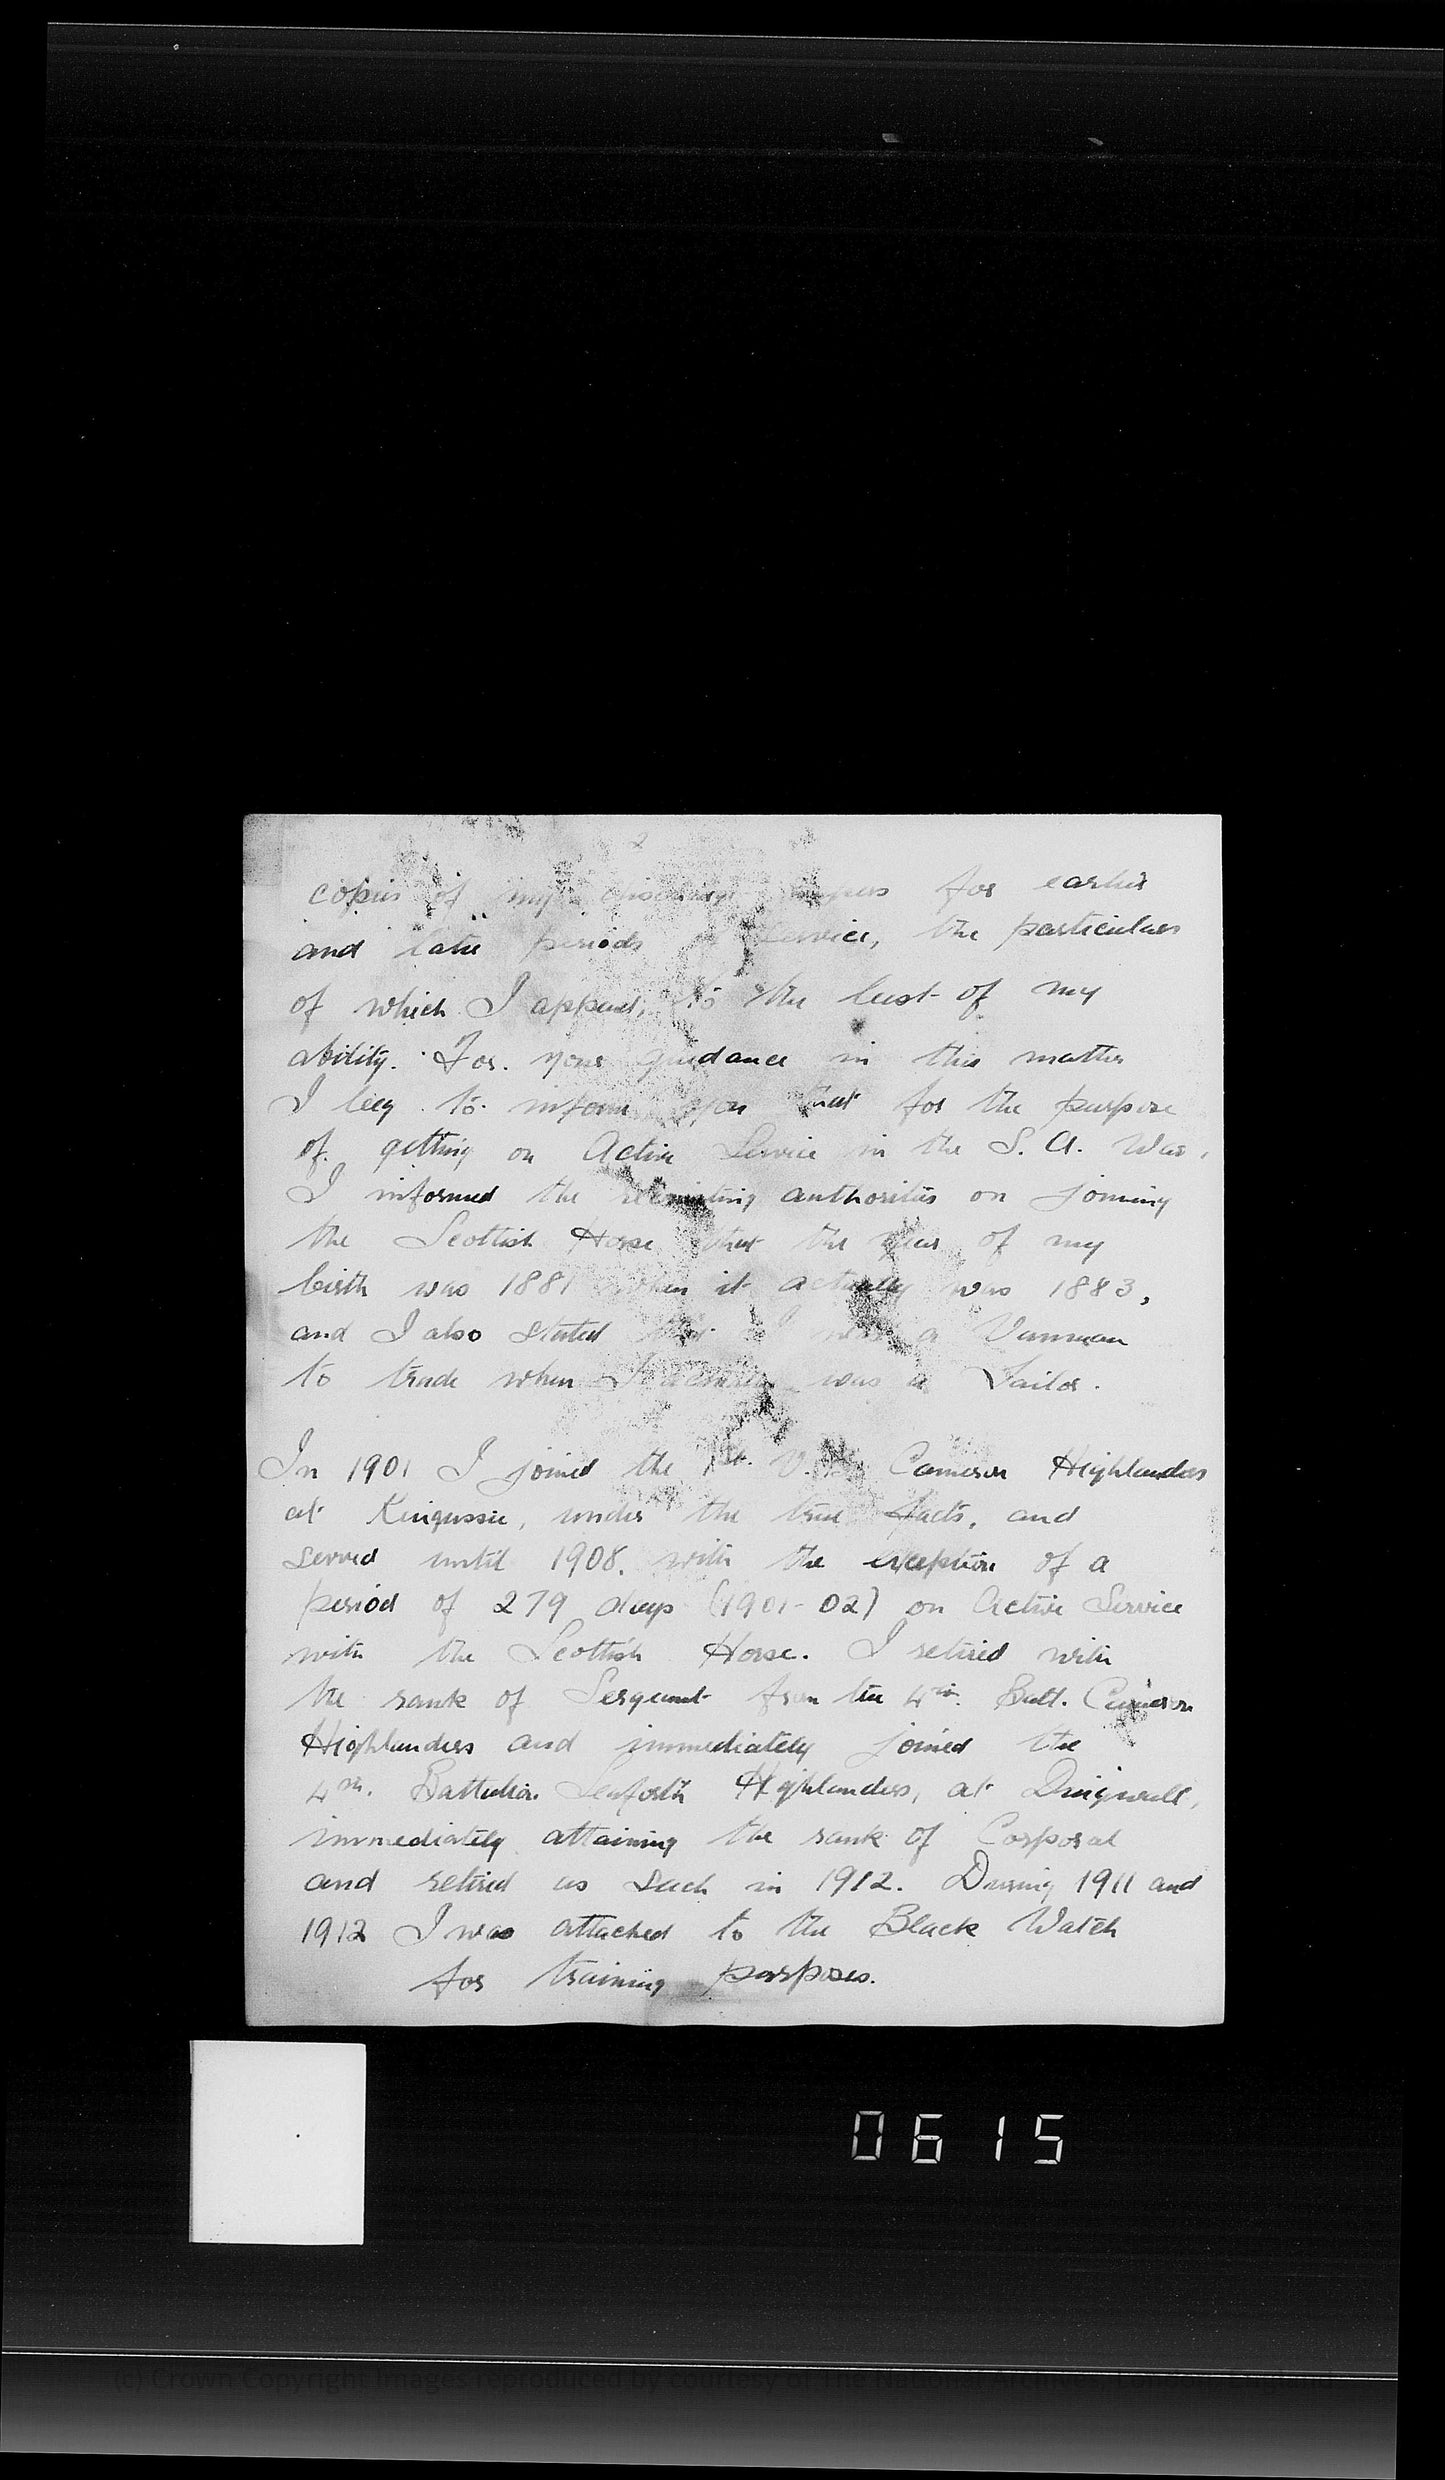 2
copies of my discharge papers for earlier
and later periods of Service, the particulars
of which I append, to the best of my
ability. For your guidance in this matter
I beg to inform you that for the purpose
of getting on Active Service in the S. A. War,
I informed the recruiting authorities on joining
the Scottish Horse that the year of my
birth was 1881 when it actually was 1883,
and I also stated that I was a Vanman
to trade when I actually was a Tailor.
In 1901 I joined the 1st. V. Cameron Highlanders
at Kingussie, under the true facts, and
served until 1908, with the exception of a
period of 279 days (1901-02) on Active Service
with the Scottish Horse. I retired with
the rank of Sergeant from the 4th. Batt. Cameron
Highlanders and immediately joined the
4th. Battalion Seaforth Highlanders, at Dingwall,
immediately attaining the rank of Corporal
and retired as such in 1912. During 1911 and
1912 I was attached to the Black Watch
for training purposes.
0615
(c) Crown Copyright Images reproduced by courtesy of The National Archives, London, England.